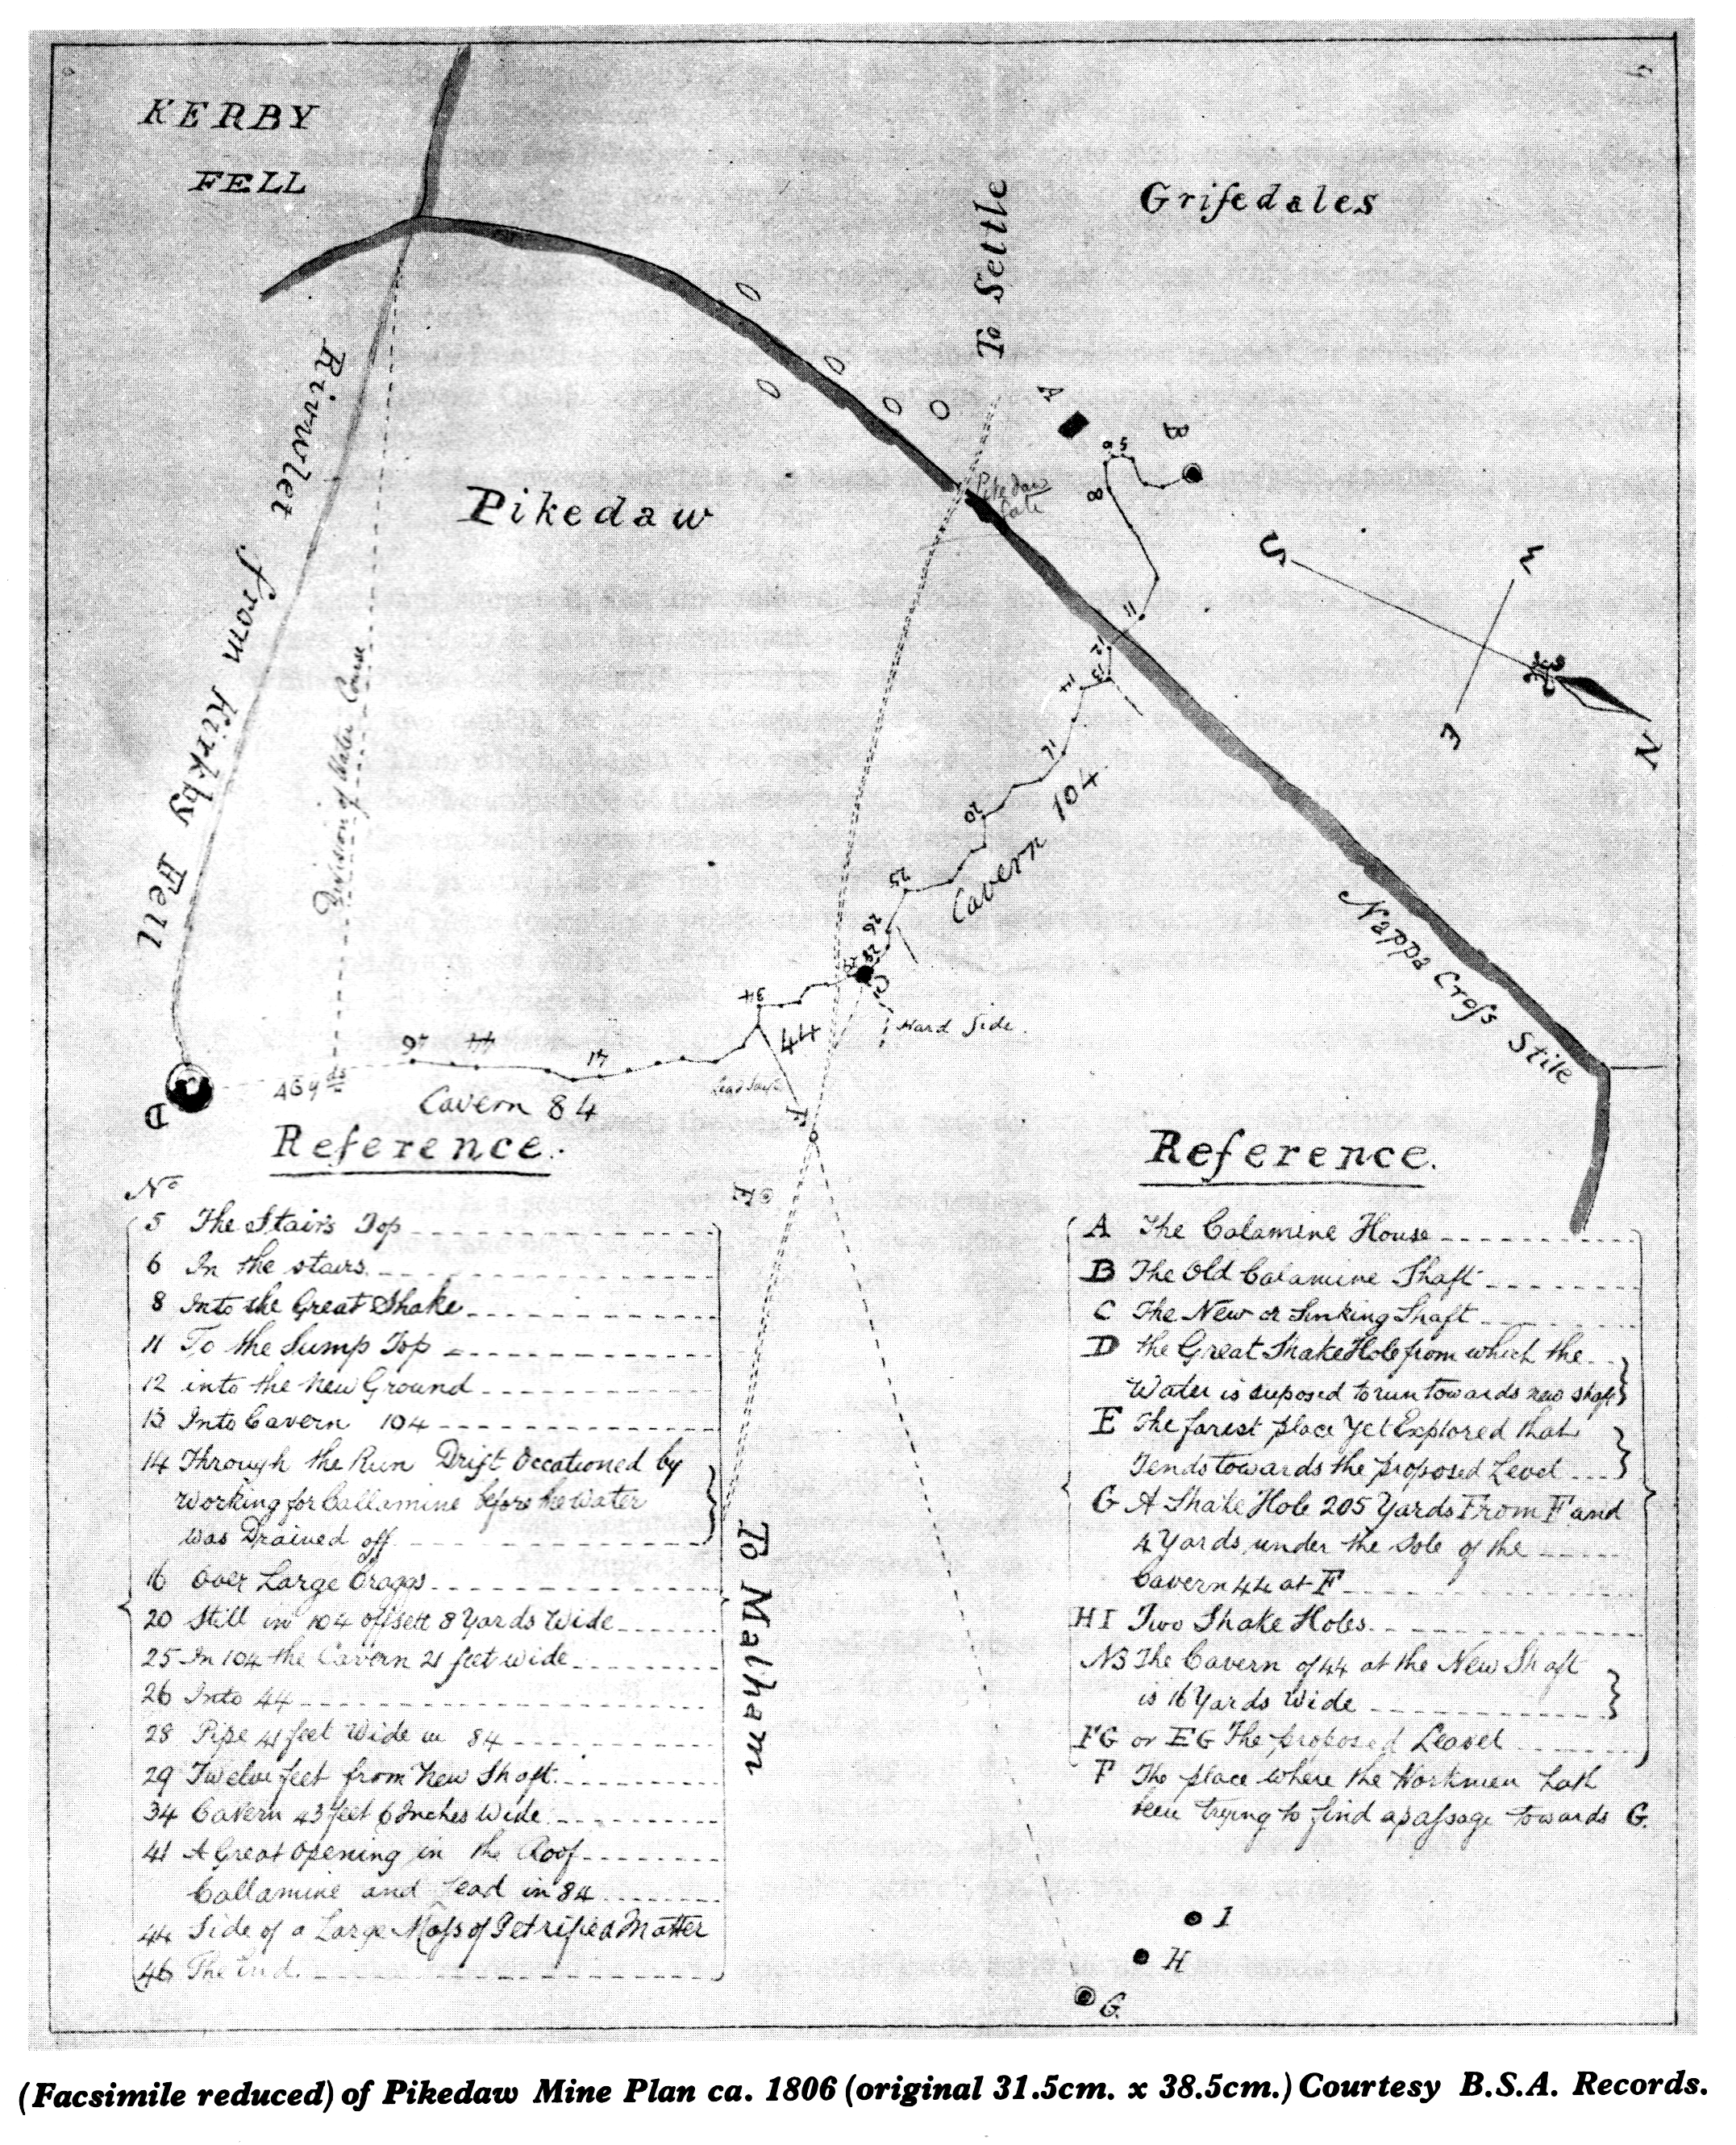 KERBY
FELL
Grisedales
To Settle
Rivulet from Kirkby Fell
Pikedaw
Pikedaw
Gate
A
B
5
6
8
11
12
13
14
16
20
25
26
28
29
C
34
44
41
44
46
S
W
E
N
Division of Water Course
Cavern 104
Nappa Cross Stile
Hard Side.
46 yds
Cavern 84
D
F
E
To Malham
Reference.
No
5 The Stairs Top
6 In the stairs
8 Into the Great Shake
11 To the Sump Top
12 into the New Ground
13 Into Cavern 104
14 Through the Run Drift Occationed by
Working for Callamine before the Water
was Drained off
16 Over Large Craggs
20 Still in 104 offsett 8 Yards Wide
25 In 104 the Cavern 21 feet wide
26 Into 44
28 Pipe 41 feet Wide in 84
29 Twelve feet from New Shaft
34 Cavern 43 feet 6 Inches Wide
41 A Great Opening in the Roof
Callamine and Lead in 84
44 Side of a Large Mass of Petrified Matter
46 The End.
Reference.
A The Calamine House
B The Old Calamine Shaft
C The New or Sinking Shaft
D the Great Shake Hole from which the
Water is suposed to run towards new shaft
E The farest place Yet Explored that
Tends towards the proposed Level
G A Shake Hole 205 Yards From F and
4 Yards under the Sole of the
Cavern 44 at F
H I Two Shake Holes
NB The Cavern of 44 at the New Shaft
is 16 Yards Wide
FG or EG The proposed Leavel
F The place where the Workmen hath
been trying to find a passage towards G.
I
H
G.
(Facsimile reduced) of Pikedaw Mine Plan ca. 1806 (original 31.5cm. x 38.5cm.) Courtesy B.S.A. Records.